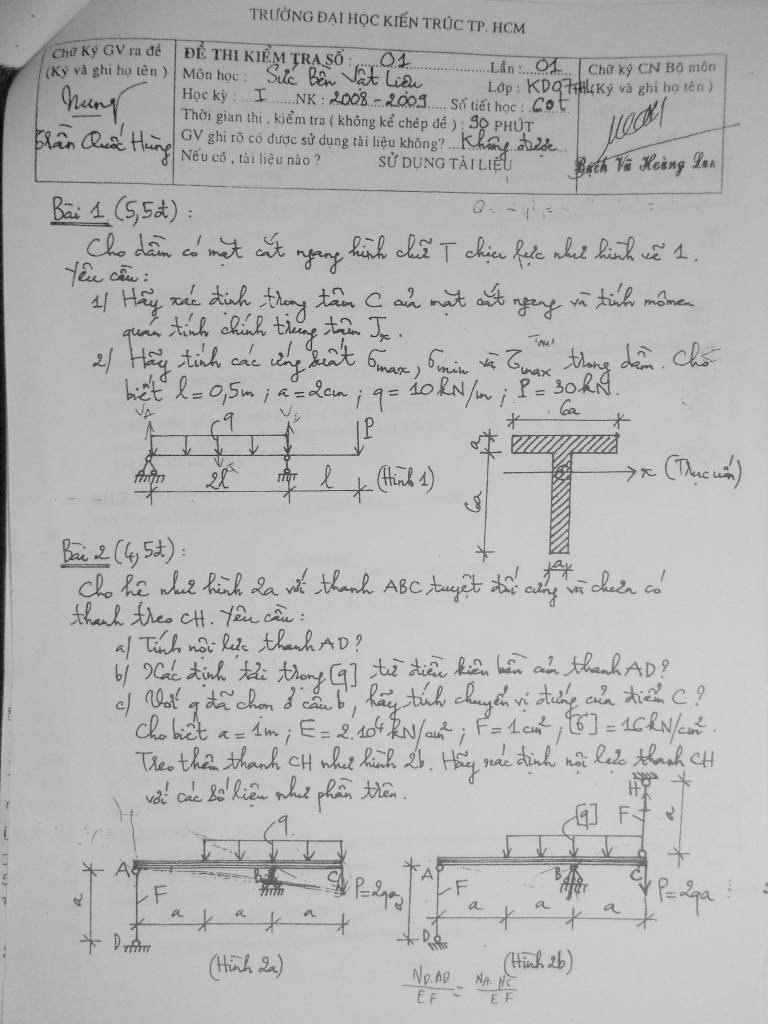 TRƯỜNG ĐẠI HỌC KIẾN TRÚC TP. HCM
Chữ Ký GV ra đề
(Ký và ghi họ tên )
Hung
Trần Quốc Hùng
ĐỀ THI KIỂM TRA SỐ : 01 Lần : 01
Môn học : Sức Bền Vật Liệu Lớp : KD07
Học kỳ : I NK : 2008 - 2009 Số tiết học : 60t
Thời gian thi , kiểm tra ( không kể chép đề ) : 90 PHÚT
GV ghi rõ có được sử dụng tài liệu không? Không được
Nếu có , tài liệu nào ? SỬ DỤNG TÀI LIỆU
Chữ ký CN Bộ môn
(Ký và ghi họ tên )
Bạch Vũ Hoàng Lan
Bài 1 (5,5đ) :
Cho dầm có mặt cắt ngang hình chữ T chịu lực như hình vẽ 1.
Yêu cầu :
1/ Hãy xác định trọng tâm C của mặt cắt ngang và tính mômen
quán tính chính trung tâm Jx.
2/ Hãy tính các ứng suất σmax, σmin và τmax trong dầm. Cho
biết l = 0,5m ; a = 2cm ; q = 10 kN/m ; P = 30 kN.
VA q VB P
2l l (Hình 1)
6a
a
6a
C
x (Trục uốn)
a
Bài 2 (4,5đ) :
Cho hệ như hình 2a với thanh ABC tuyệt đối cứng và chưa có
thanh treo CH. Yêu cầu :
a/ Tính nội lực thanh AD?
b/ Xác định tải trọng [q] từ điều kiện bền của thanh AD?
c/ Với q đã chọn ở câu b, hãy tính chuyển vị đứng của điểm C?
Cho biết a = 1m ; E = 2.10⁴ kN/cm² ; F = 1cm² ; [σ] = 16 kN/cm².
Treo thêm thanh CH như hình 2b. Hãy xác định nội lực thanh CH
với các số liệu như phần trên.
q
A B C
a F P=2qa
a a a
D
(Hình 2a)
H
[q] F a
A B C
a F P=2qa
a a a
D
(Hình 2b)